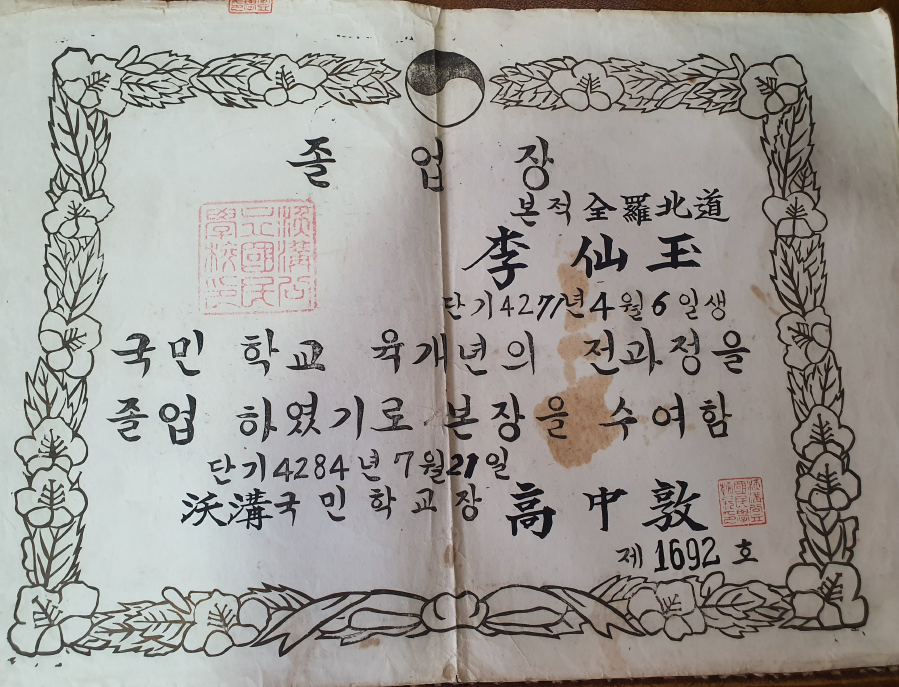 졸업장
본적 全羅北道
李仙玉
단기4271년4월6일생
국민 학교 육개년의 전과정을
졸업 하였기로 본장을 수여함
단기4284년7월21일
沃溝국민학교장 高中敦
제1692호
沃溝公
立國民
學校印